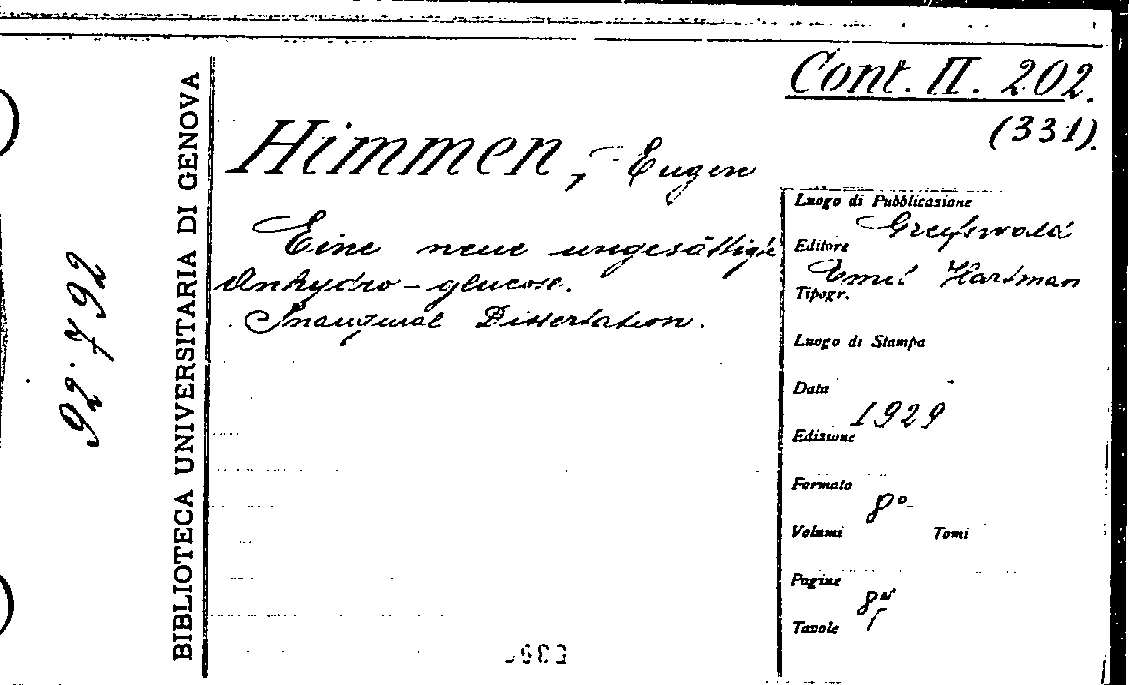 Cont. II. 202.
(331).
BIBLIOTECA UNIVERSITARIA DI GENOVA
92.792
Himmen, Eugen
Eine neue ungesättigte
Anhydro-glucose.
Inaugural Dissertation.
Luogo di Pubblicazione
Greifswald
Editore
Emil Hartman
Tipogr.
Luogo di Stampa
Data
1929
Edizione
Formato
8°
Volumi Tomi
Pagine
Tavole